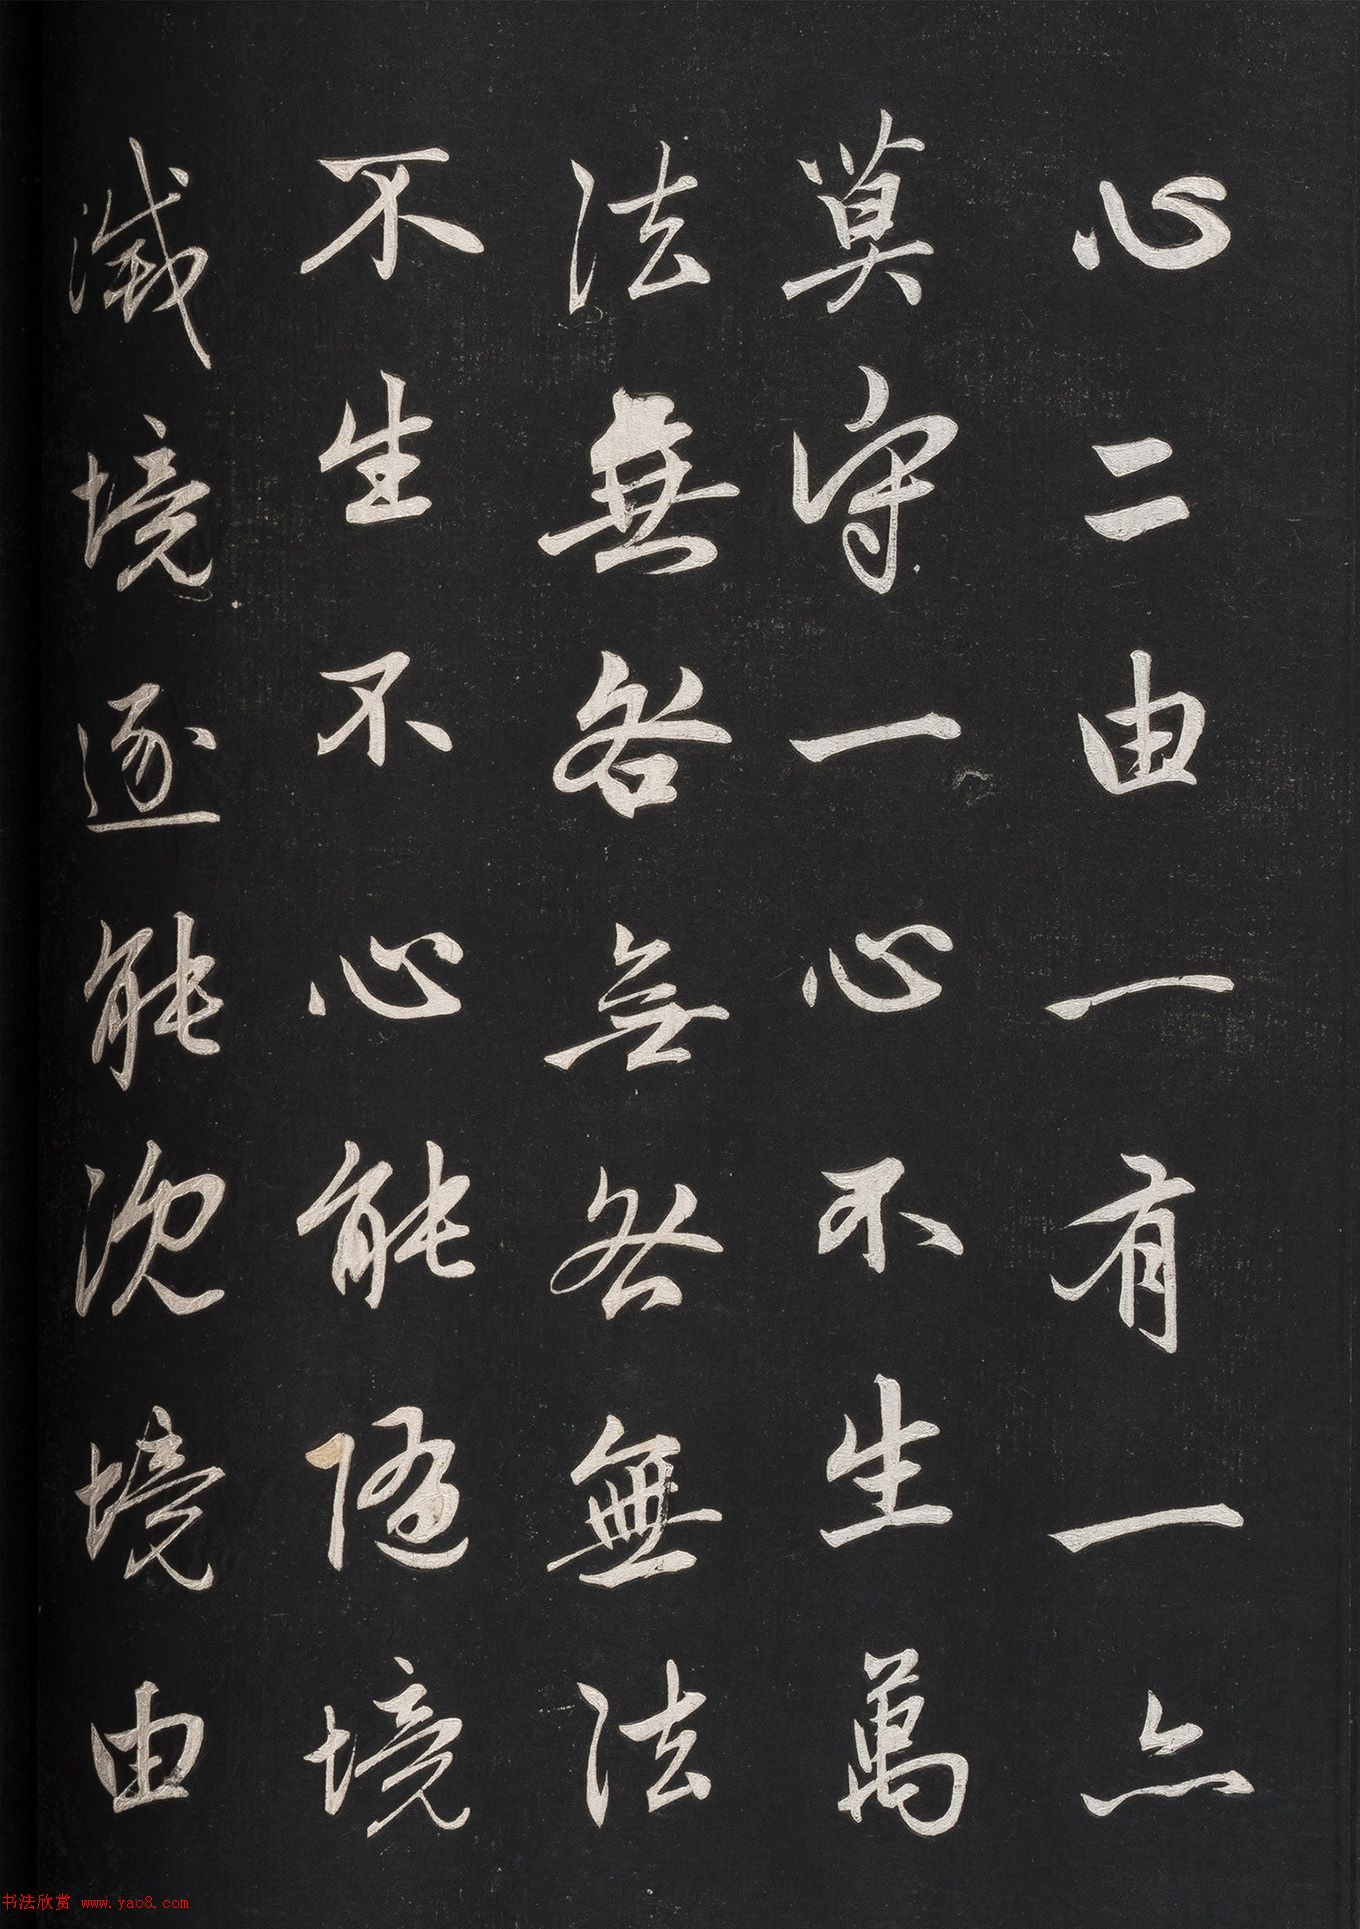 心二由一有一亦
莫守一心不生萬
法無咎無咎無法
不生不心能隨境
滅境逐能沉境由
书法欣赏 www.yac8.com